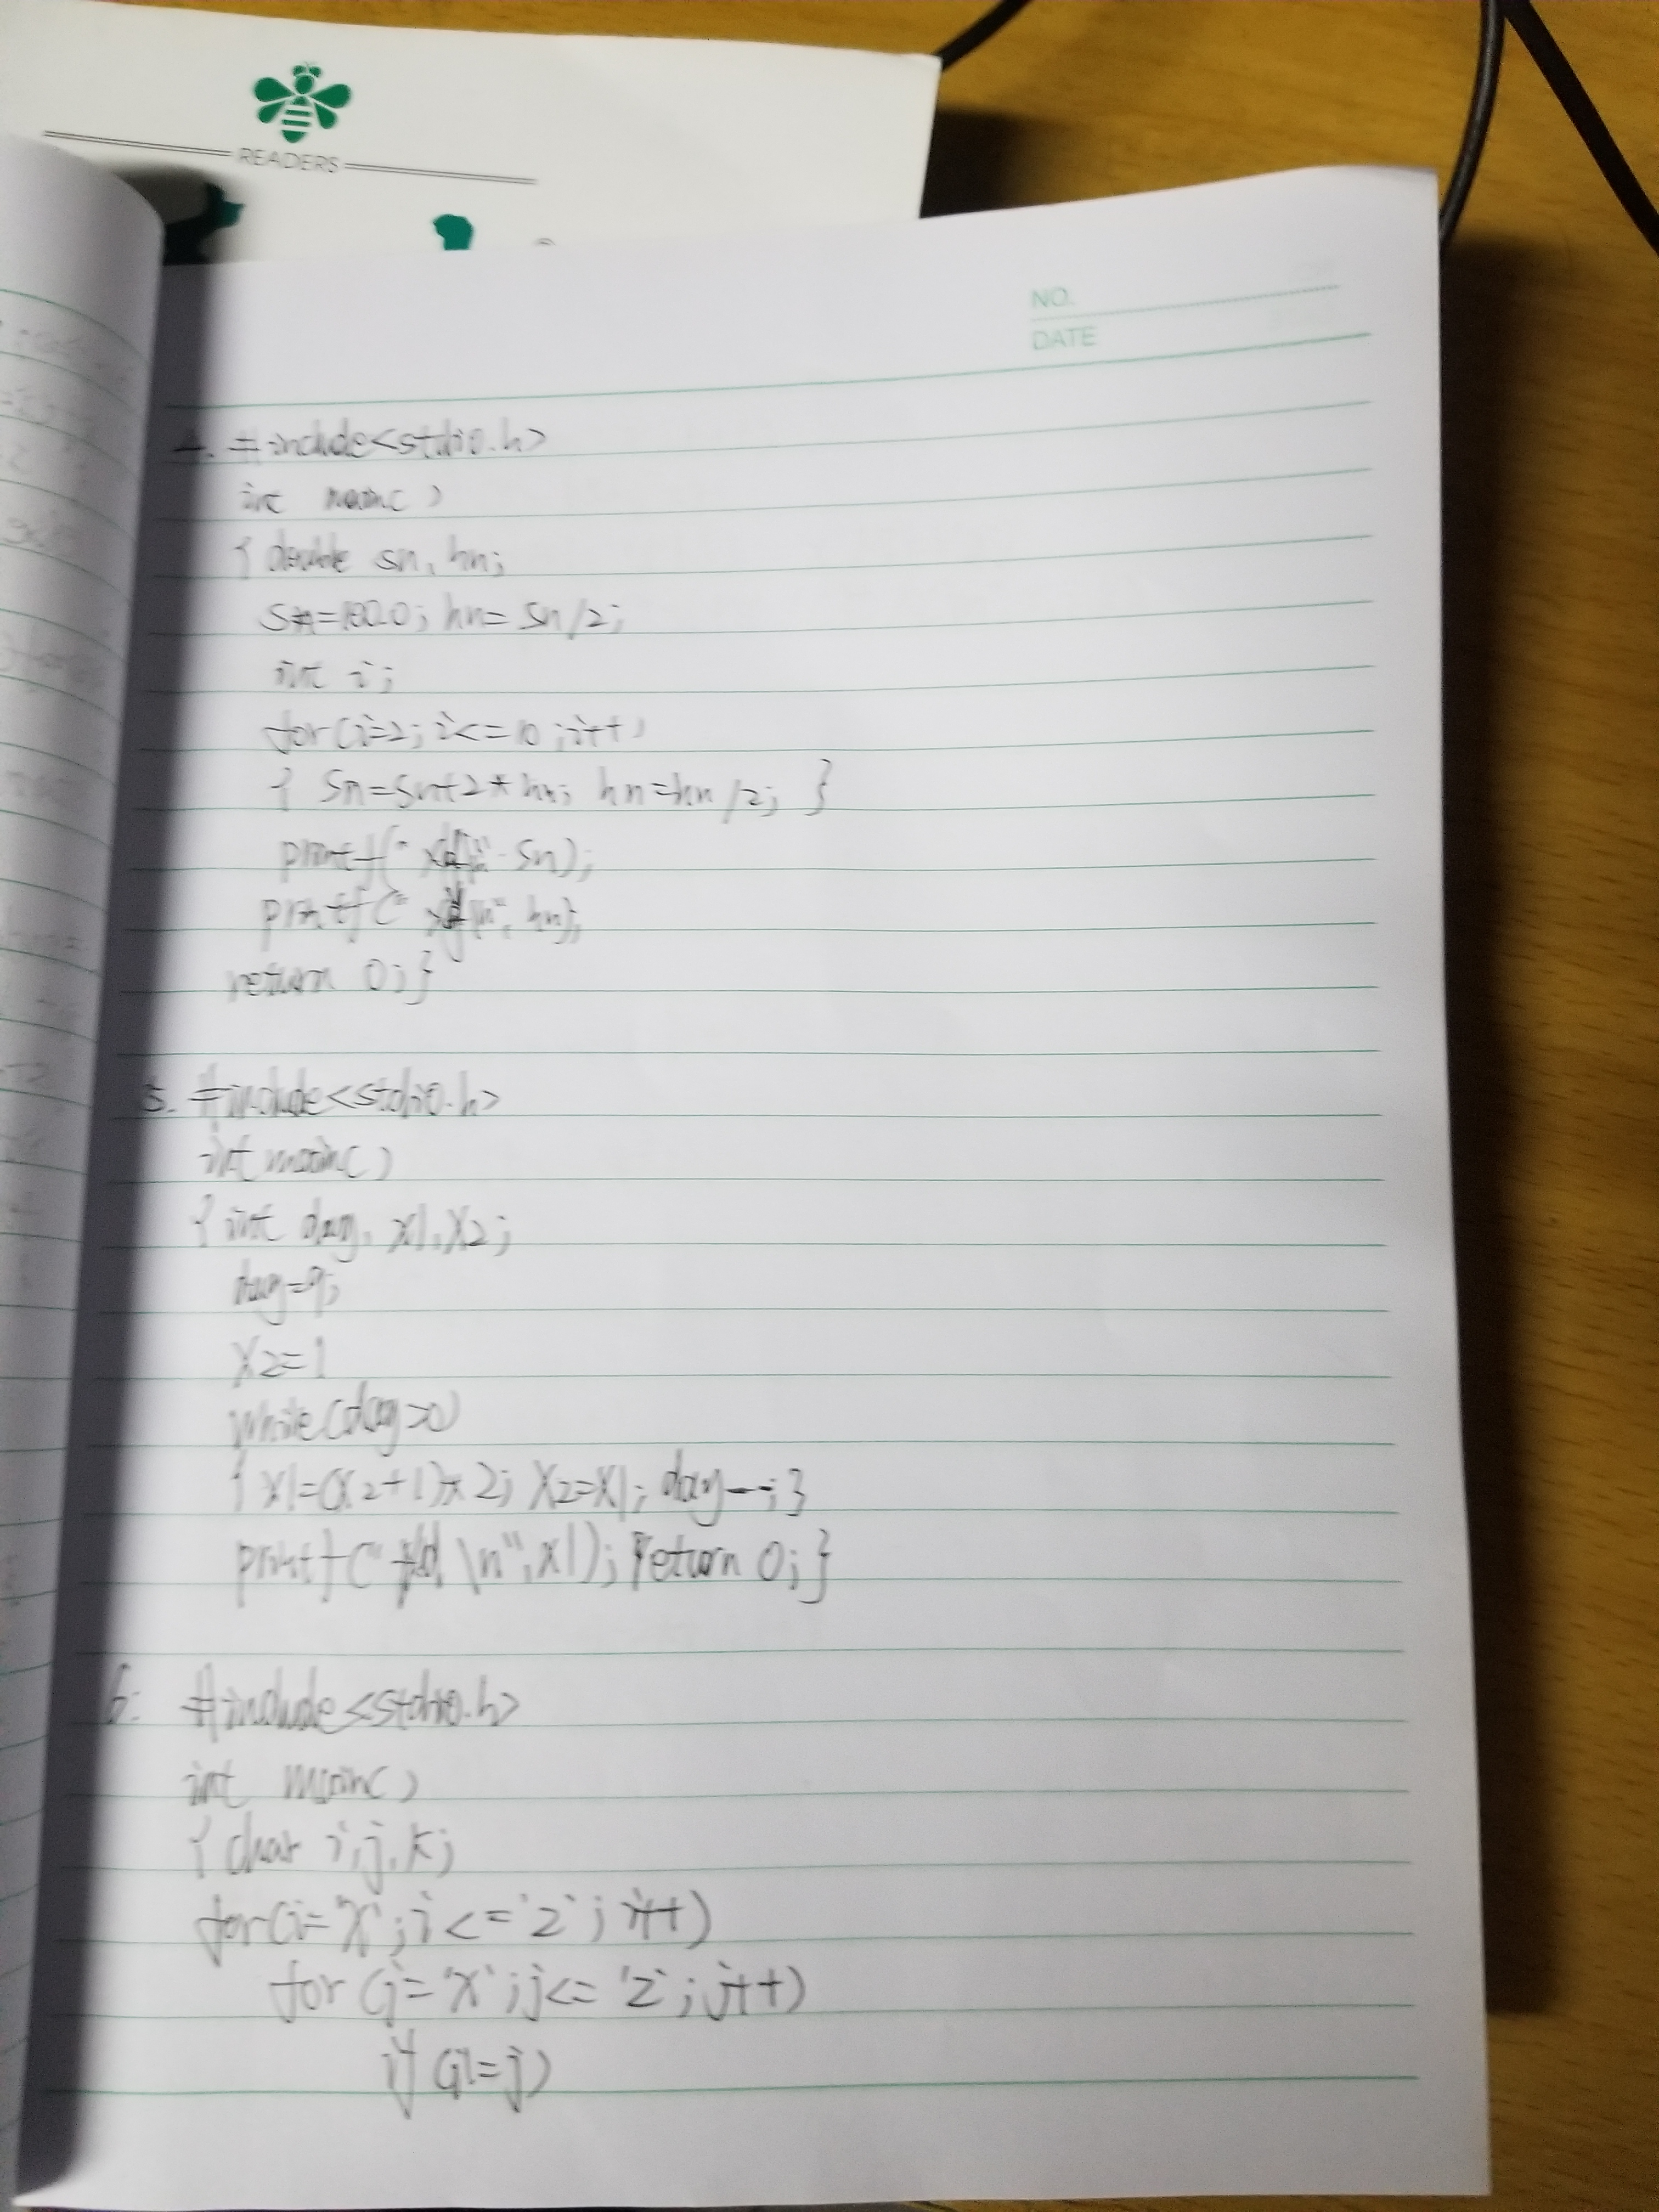 READERS
NO.
DATE
4. #include<stdio.h>
int main()
{ double sn, hn;
sn=100.0; hn=sn/2;
int i;
for(i=2; i<=10; i++)
{ sn=sn+2*hn; hn=hn/2; }
printf(" sn);
printf(" \n", hn);
return 0;}
5. #include<stdio.h>
int main()
{ int day, x1, x2;
day=9;
x2=1
while(day>0)
{ x1=(x2+1)*2; x2=x1; day--; }
printf("%d \n", x1); return 0; }
6: #include<stdio.h>
int main()
{ char i, j, k;
for(i='x'; i<='z'; i++)
for(j='x'; j<='z'; j++)
if(i!=j)